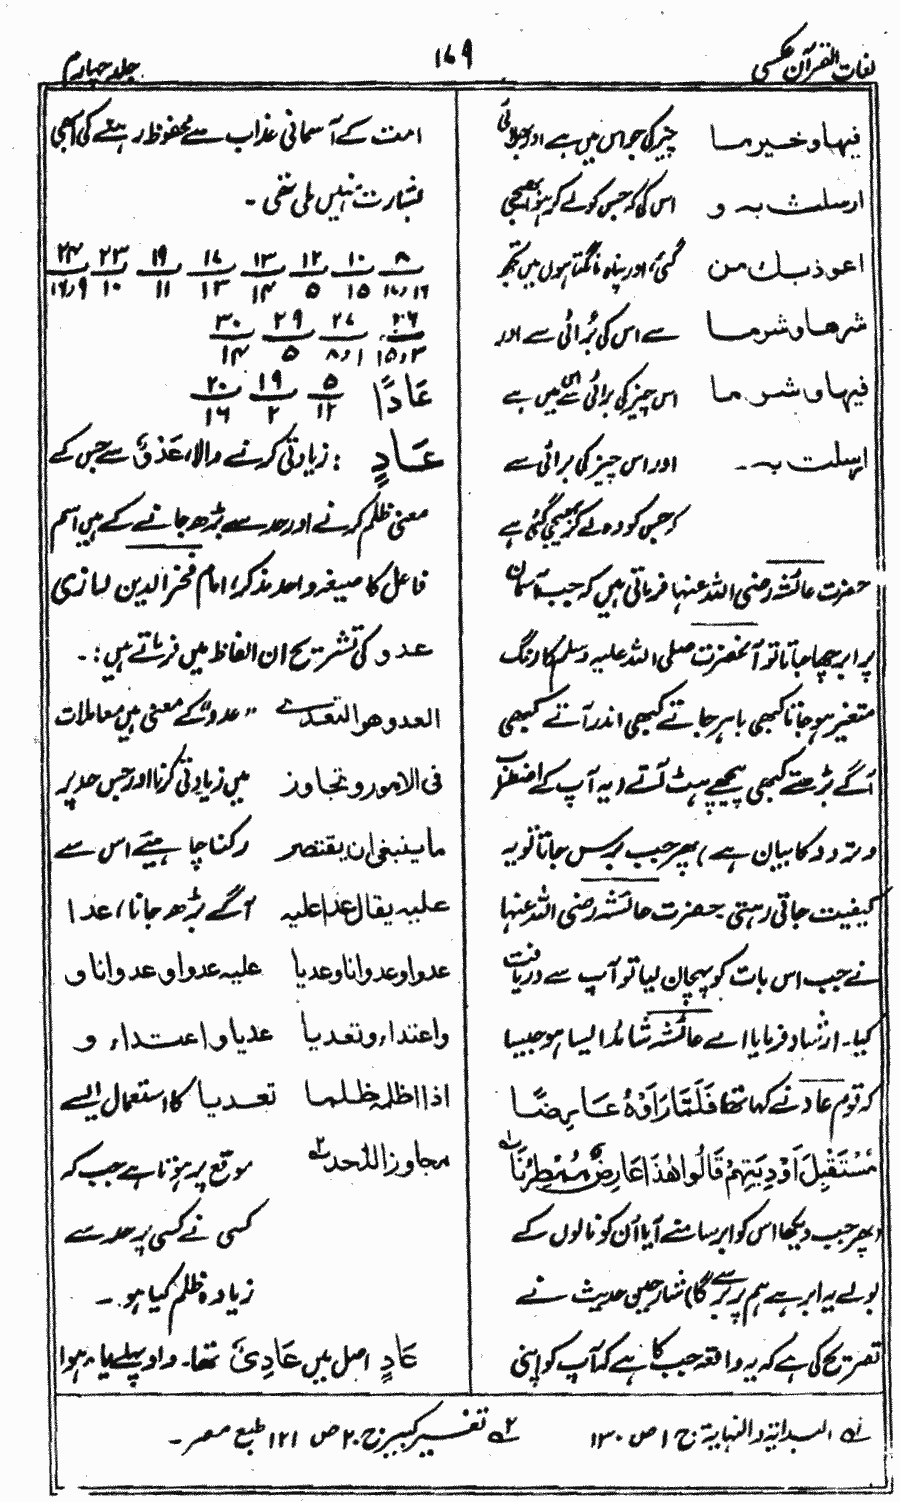 لغات القرآن عکسی
۱۷۹
جلد چہارم
فیہا و خیر ما چیز کی جو اس میں ہے اور بھلائی
ارسلت بہ و اس کی کہ جس کو لے کر ہوا بھیجی
اعوذ بک من گئی، اور پناہ مانگتا ہوں میں تجھ
شرھا و شر ما سے اس کی بُرائی سے اور
فیہا و شر ما اس چیز کی برائی سے جو اس میں ہے
ارسلت بہ۔ اور اس چیز کی برائی سے
کہ جس کو وہ لے کر بھیجی گئی ہے
حضرت عائشہ رضی اللہ عنہا فرماتی ہیں کہ جب آسمان
پر ابر چھا جاتا تو آنحضرت صلی اللہ علیہ وسلم کا رنگ
متغیر ہو جاتا کبھی باہر جاتے کبھی اندر آتے کبھی
آگے بڑھتے کبھی پیچھے ہٹ آتے (یہ آپ کے اضطراب
و تردد کا بیان ہے) پھر جب برس جاتا تو یہ
کیفیت جاتی رہتی۔ حضرت عائشہ رضی اللہ عنہا
نے جب اس بات کو پہچان لیا تو آپ سے دریافت
کیا۔ ارشاد فرمایا اے عائشہ شاید ایسا ہو جیسا
کہ قوم عاد نے کہا تھا فَلَمَّا رَاَوْهُ عَارِضًا
مُّسْتَقْبِلَ اَوْدِیَتِهِمْ قَالُوا هٰذَا عَارِضٌ مُّمْطِرُنَا ؎۱
(پھر جب دیکھا اس کو ابر سامنے آیا اُن کو نالوں کے
بولے یہ ابر ہے ہم پر برسے گا) شارحین حدیث نے
تصریح کی ہے کہ یہ واقعہ جب کا ہے کہ آپ کو اپنی
امت کے آسمانی عذاب سے محفوظ رہنے کی ابھی
بشارت نہیں ملی تھی۔
۸ ۱۰ ۱۲ ۱۳ ۱۷ ۱۹ ۲۳ ۲۴
۱۶،۱۷ ۱۵ ۵ ۱۴ ۱۳ ۱۱ ۱۰ ۹،۱۶
۲۶ ۲۷ ۲۹ ۳۰
۳،۱۵ ۱،۸ ۵ ۱۴
عَادًا ۵ ۱۹ ۲۰
۱۲ ۲ ۱۶
عَادٍ : زیادتی کرنے والا، عَدْوٌ سے جس کے
معنی ظلم کرنے اور حد سے بڑھ جانے کے ہیں اسم
فاعل کا صیغہ واحد مذکر، امام فخر الدین رازی
عدو کی تشریح ان الفاظ میں فرماتے ہیں:۔
العدو ھو التعدی "عدو" کے معنی ہیں معاملات
فی الامور و تجاوز میں زیادتی کرنا اور جس حد پر
ما ینبغی ان یقتصر رکنا چاہیئے اس سے
علیہ یقال عدا علیہ آگے بڑھ جانا، عدا
عدوا و عدوانا و عدیا علیہ عدوا و عدوانا و
و اعتداء و تعدیا عدیا و اعتداء و
اذا ظلمہ ظلما تعدیا کا استعمال ایسے
مجاوز اللحد ؎۲ موقع پر ہوتا ہے جب کہ
کسی نے کسی پر حد سے
زیادہ ظلم کیا ہو۔
عَادٍ اصل میں عَادِوٌ تھا۔ واو پہلے یاء ہوا
؎۱ البدایۃ والنہایۃ ج ۱ ص ۱۳۰ ؎۲ تفسیر کبیر ج ۲ ص ۱۲۱ طبع مصر۔